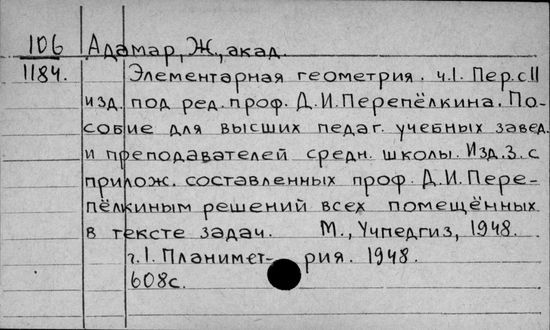 106 Адамар, Ж., акад.
1184. Элементарная геометрия. ч.I. Пер. с II
изд. под ред. проф. Д.И.Перепёлкина. По-
собие для высших педаг. учебных завед.
и преподавателей средн. школы. Изд. 3. с
прилож. составленных проф. Д.И.Пере-
пёлкиным решений всех помещённых
в тексте задач. М., Учпедгиз, 1948.
г.I. Планимет- рия. 1948.
608с.